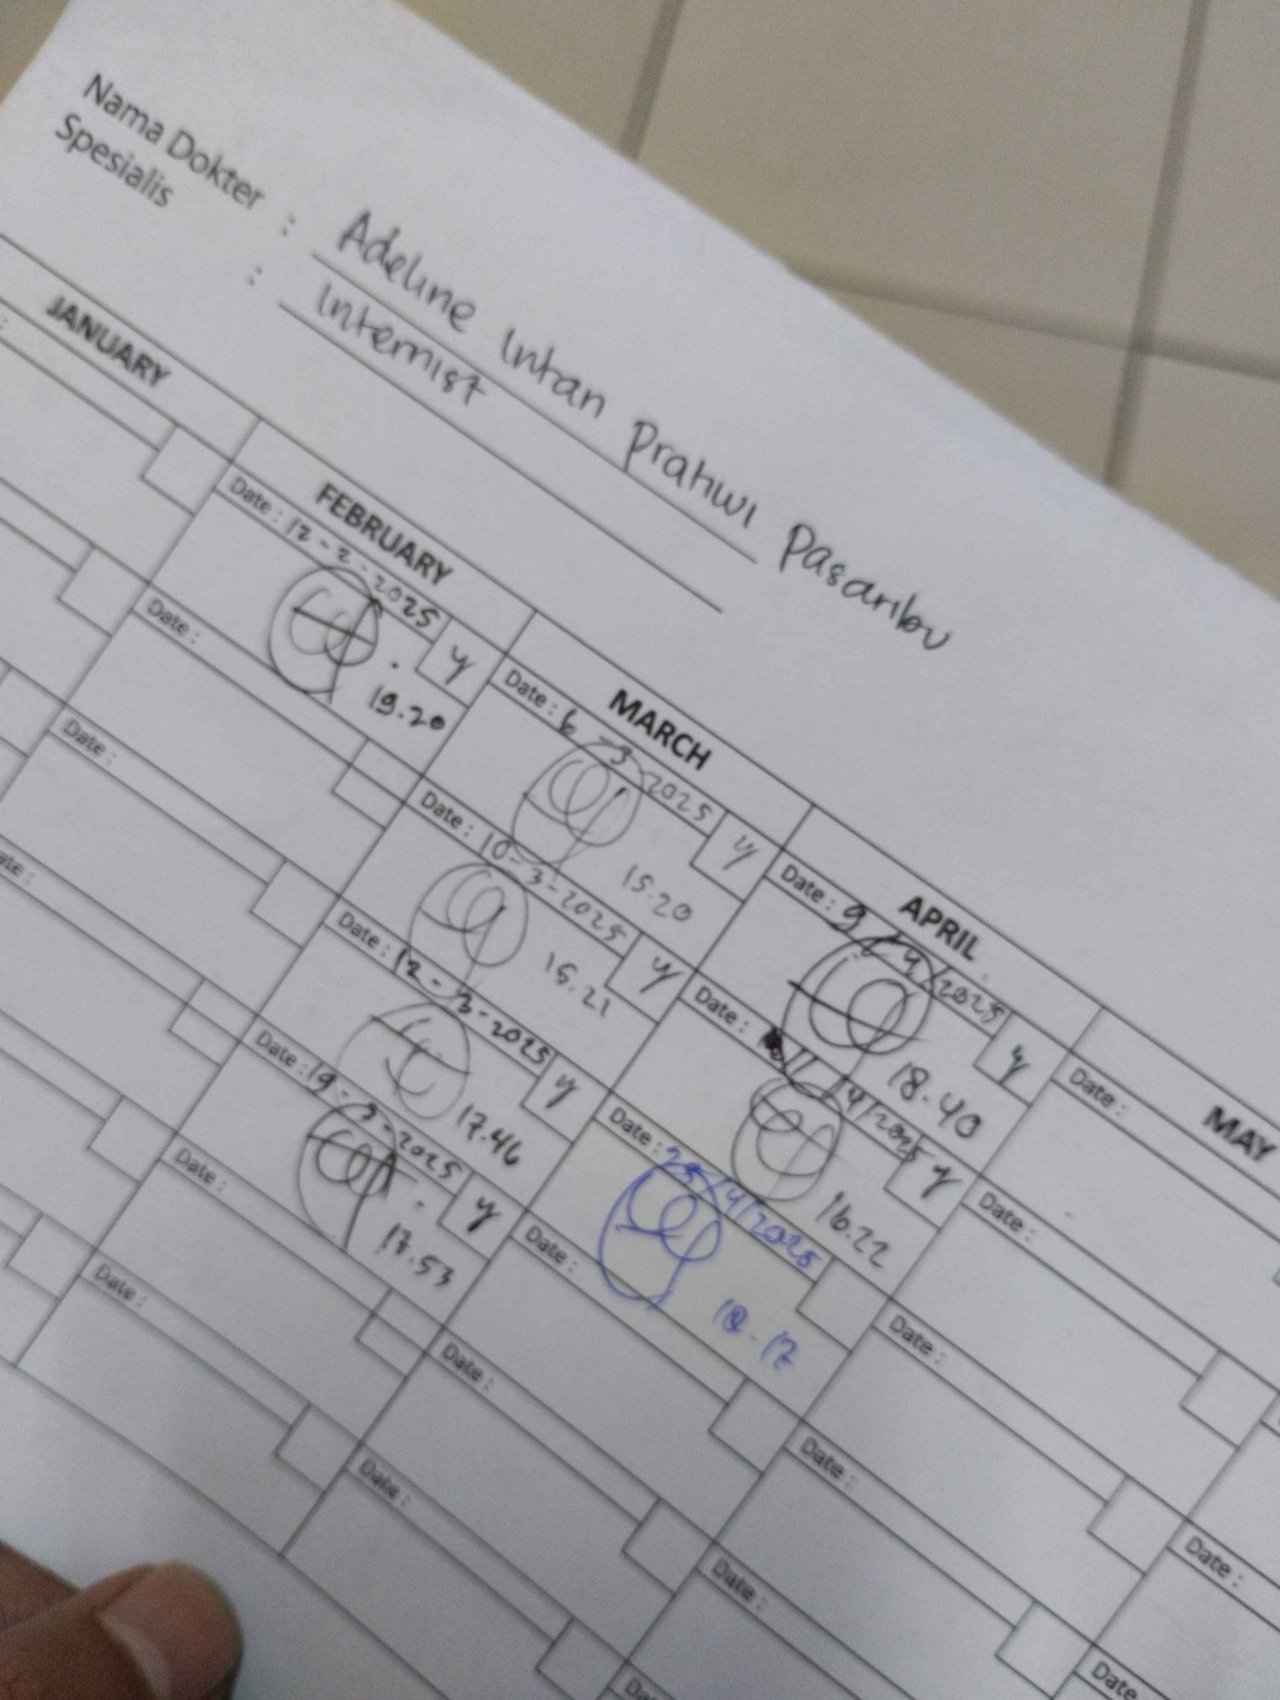 Nama Dokter : Adeline Intan Prahwi Pasaribu
Spesialis : Internist
JANUARY
FEBRUARY
Date : 12-2-2025 y
19.20
Date :
Date :
Date : 
Date :
Date :
MARCH
Date : 6-3-2025 y
15.20
Date : 10-3-2025 y
15.21
Date : 12-3-2025 y
17.46
Date : 19-3-2025 y
17.53
Date :
Date :
APRIL
Date : 9/4/2025 y
18.40
Date : 11/4/2025 y
16.22
Date : 25/4/2025
18-17
Date :
Date :
Date :
MAY
Date :
Date :
Date :
Date :
Date :
Date